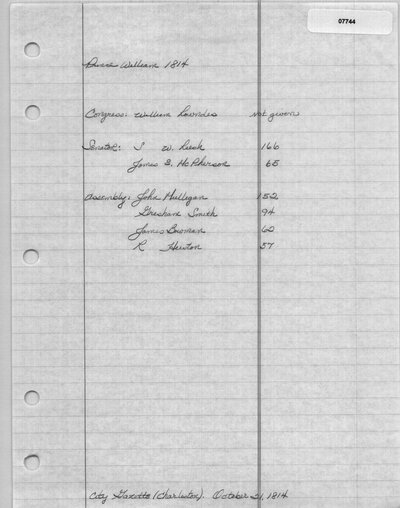 07744
Prince William 1814
Congress: William Lowndes Not given
Senator: J W. Leek 166
James E. McPherson 65
Assembly: John Mulligan 152
Gresham Smith 94
James Bowman 60
R Heuton 57
City Gazette (Charleston). October 21, 1814